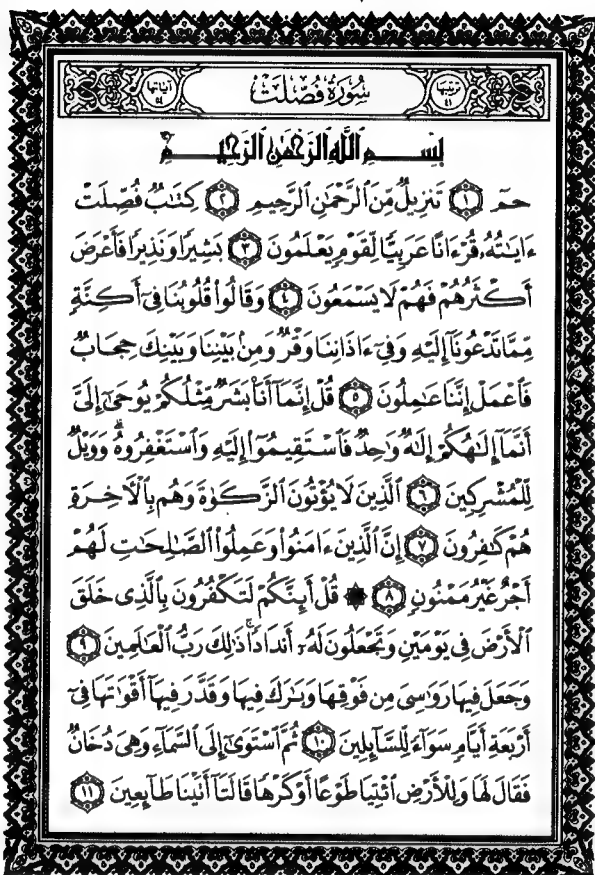 ترتيبها ٤١
سُورَةُ فُصِّلَتْ
آياتها ٥٤
بِسْمِ اللَّهِ الرَّحْمَٰنِ الرَّحِيمِ
حمٓ ١ تَنزِيلٌ مِّنَ ٱلرَّحْمَٰنِ ٱلرَّحِيمِ ٢ كِتَٰبٌ فُصِّلَتْ
ءَايَٰتُهُۥ قُرْءَانًا عَرَبِيًّا لِّقَوْمٍ يَعْلَمُونَ ٣ بَشِيرًا وَنَذِيرًا فَأَعْرَضَ
أَكْثَرُهُمْ فَهُمْ لَا يَسْمَعُونَ ٤ وَقَالُوا۟ قُلُوبُنَا فِىٓ أَكِنَّةٍ
مِّمَّا تَدْعُونَآ إِلَيْهِ وَفِىٓ ءَاذَانِنَا وَقْرٌ وَمِنۢ بَيْنِنَا وَبَيْنِكَ حِجَابٌ
فَٱعْمَلْ إِنَّنَا عَٰمِلُونَ ٥ قُلْ إِنَّمَآ أَنَا۠ بَشَرٌ مِّثْلُكُمْ يُوحَىٰٓ إِلَىَّ
أَنَّمَآ إِلَٰهُكُمْ إِلَٰهٌ وَٰحِدٌ فَٱسْتَقِيمُوٓا۟ إِلَيْهِ وَٱسْتَغْفِرُوهُ ۗ وَوَيْلٌ
لِّلْمُشْرِكِينَ ٦ ٱلَّذِينَ لَا يُؤْتُونَ ٱلزَّكَوٰةَ وَهُم بِٱلْءَاخِرَةِ
هُمْ كَٰفِرُونَ ٧ إِنَّ ٱلَّذِينَ ءَامَنُوا۟ وَعَمِلُوا۟ ٱلصَّٰلِحَٰتِ لَهُمْ
أَجْرٌ غَيْرُ مَمْنُونٍ ٨ ۞ قُلْ أَئِنَّكُمْ لَتَكْفُرُونَ بِٱلَّذِى خَلَقَ
ٱلْأَرْضَ فِى يَوْمَيْنِ وَتَجْعَلُونَ لَهُۥٓ أَندَادًا ۚ ذَٰلِكَ رَبُّ ٱلْعَٰلَمِينَ ٩
وَجَعَلَ فِيهَا رَوَٰسِىَ مِن فَوْقِهَا وَبَٰرَكَ فِيهَا وَقَدَّرَ فِيهَآ أَقْوَٰتَهَا فِىٓ
أَرْبَعَةِ أَيَّامٍ سَوَآءً لِّلسَّآئِلِينَ ١٠ ثُمَّ ٱسْتَوَىٰٓ إِلَى ٱلسَّمَآءِ وَهِىَ دُخَانٌ
فَقَالَ لَهَا وَلِلْأَرْضِ ٱئْتِيَا طَوْعًا أَوْ كَرْهًا قَالَتَآ أَتَيْنَا طَآئِعِينَ ١١